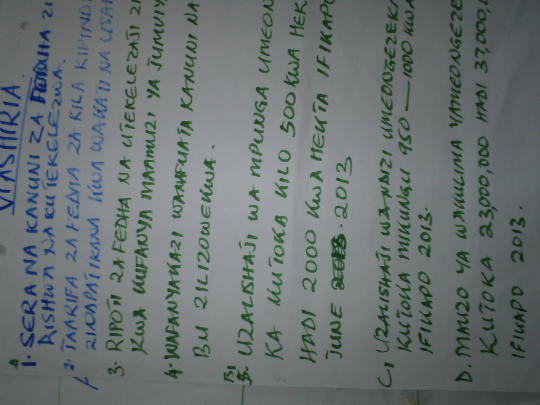 VIASHIRIA
1. SERA NA KANUNI ZA FEDHA ZI
AISHWA NA KUTEKELEZWA.
2. TAARIFA ZA FEDHA ZA KILA KIPINDI
ZINAPATIKANA KWA WAKATI NA USAH
3. RIPOTI ZA FEDHA NA UTEKELEZAJI ZI
KWA KUFANYA MAAMUZI YA JUMUIY
4. WAFANYAKAZI WANAFUATA KANUNI NA
BM ZILIZOWEKWA.
B1
5. UZALISHAJI WA MPUNGA UMEON
KA KUTOKA KILO 500 KWA HEK
HADI 2000 KWA HEKTA IFIKAPO
JUNE 2013
C, UZALISHAJI WA NAZI UMEONGEZEKA
KUTOKA MIKUNGU 750 — 1000 KWA
IFIKAPO 2013.
D. MAUZO YA WAKULIMA YAMEONGEZE
KUTOKA 23,000,000 HADI 37,000,
IFIKAPO 2013.